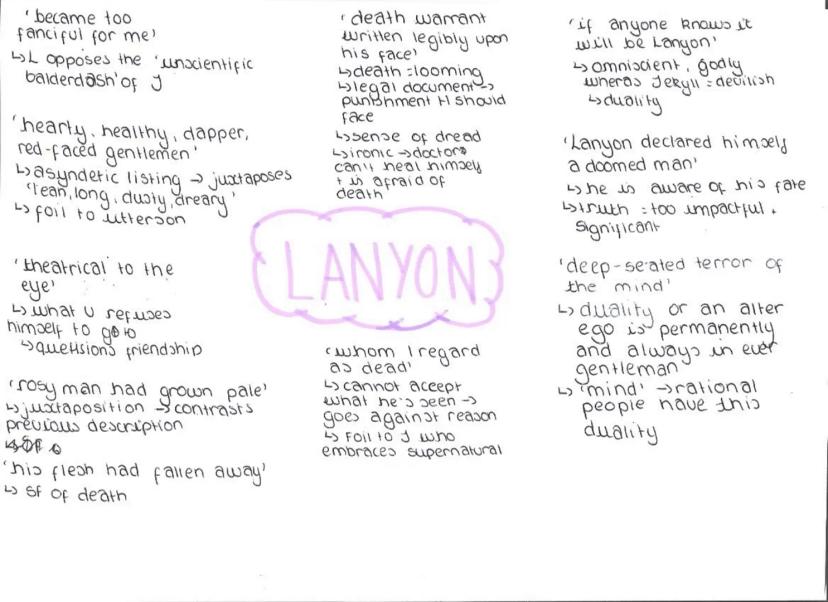 'became too
fanciful for me'
↳ L opposes the 'unscientific
balderdash' of J
'hearty, healthy, dapper,
red-faced gentlemen'
↳ asyndetic listing → juxtaposes
'lean, long, dusty, dreary'
↳ foil to utterson
'theatrical to the
eye'
↳ what U refuses
himself to go to
↳ questions friendship
'rosy man had grown pale'
↳ juxtaposition → contrasts
previous description
'his flesh had fallen away'
↳ SF of death
'death warrant
written legibly upon
his face'
↳ death = looming
↳ legal document →
punishment H should
face
↳ sense of dread
↳ ironic → doctors
can't heal himself
+ is afraid of
death
LANYON
'whom I regard
as dead'
↳ cannot accept
what he's seen →
goes against reason
↳ foil to J who
embraces supernatural
'if anyone knows it
will be Lanyon'
↳ omniscient, godly
wheras Jekyll = devilish
↳ duality
'Lanyon declared himself
a doomed man'
↳ he is aware of his fate
↳ truth = too impactful +
significant
'deep-seated terror of
the mind'
↳ duality or an alter
ego is permanently
and always in ever
gentleman
↳ 'mind' → rational
people have this
duality